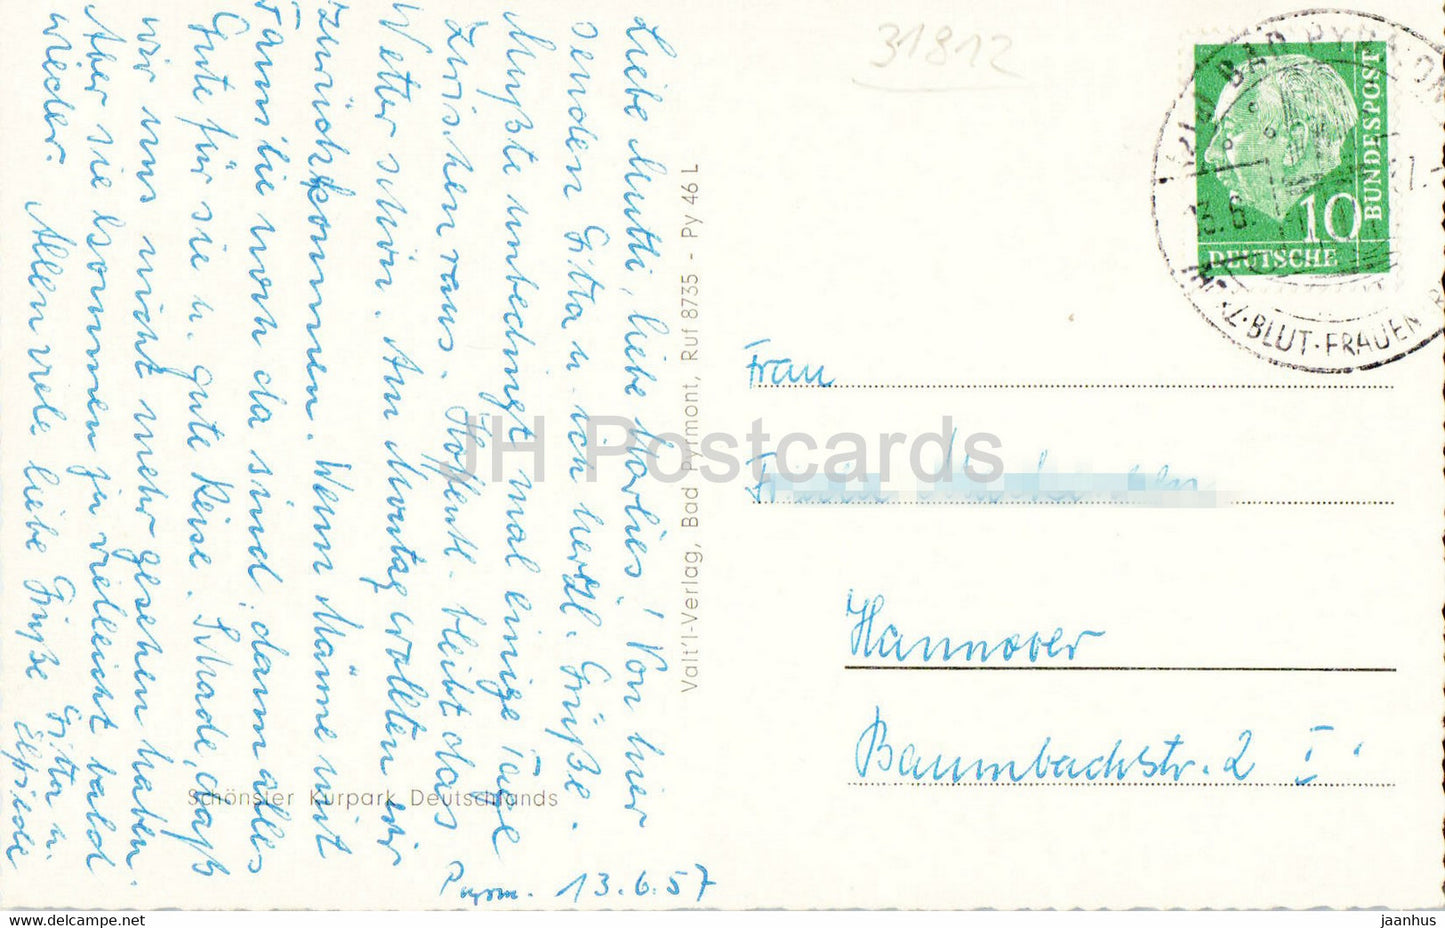 Pyrm. 13.6.57
Liebe Mutti, liebe Marlies! Von hier
senden Gitta u. ich herzl. Grüße.
Mußte unbedingt mal einige Tage
zwischen raus. Hoffentl. bleibt das
Wetter schön. Am Montag wollten wir
zurückkommen. Wenn Männe mit
Fam'lie noch da sind, dann alles
Gute für sie u. gute Reise. Schade, daß
wir uns nicht mehr gesehen haben.
Aber sie kommen ja vielleicht bald
wieder. Allen viele liebe Grüße
Gitta u.
Elfriede
Schönster Kurpark Deutschlands
Valt'l-Verlag, Bad Pyrmont, Ruf 8735 - Py 46 L
31812
BAD PYRMONT
13.6.
HERZ·BLUT·FRAUEN
10
DEUTSCHE
BUNDESPOST
Frau
Frieda
Hannover
Baumbachstr. 2 I.
JH Postcards
hippostcard.com
jaanhus